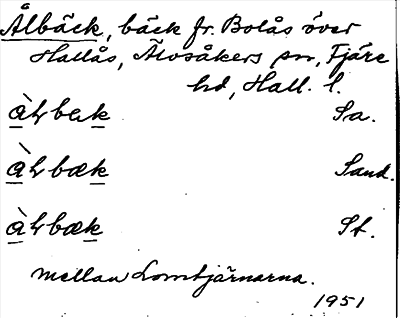 Ålbäck, bäck fr. Bolås över
Hallås, Älvsåkers sn, Fjäre
hd, Hall. l.
Sa.
Sand.
St.
mellan Lomtjärnarna.
1951